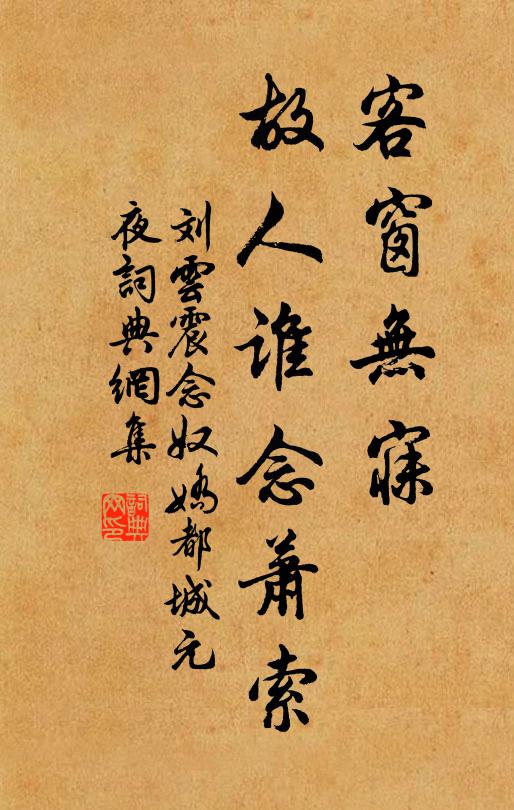 客窗無寐
故人誰念蕭索
刘雲震念奴嬌都城元
夜詞典網集
詞典
网印